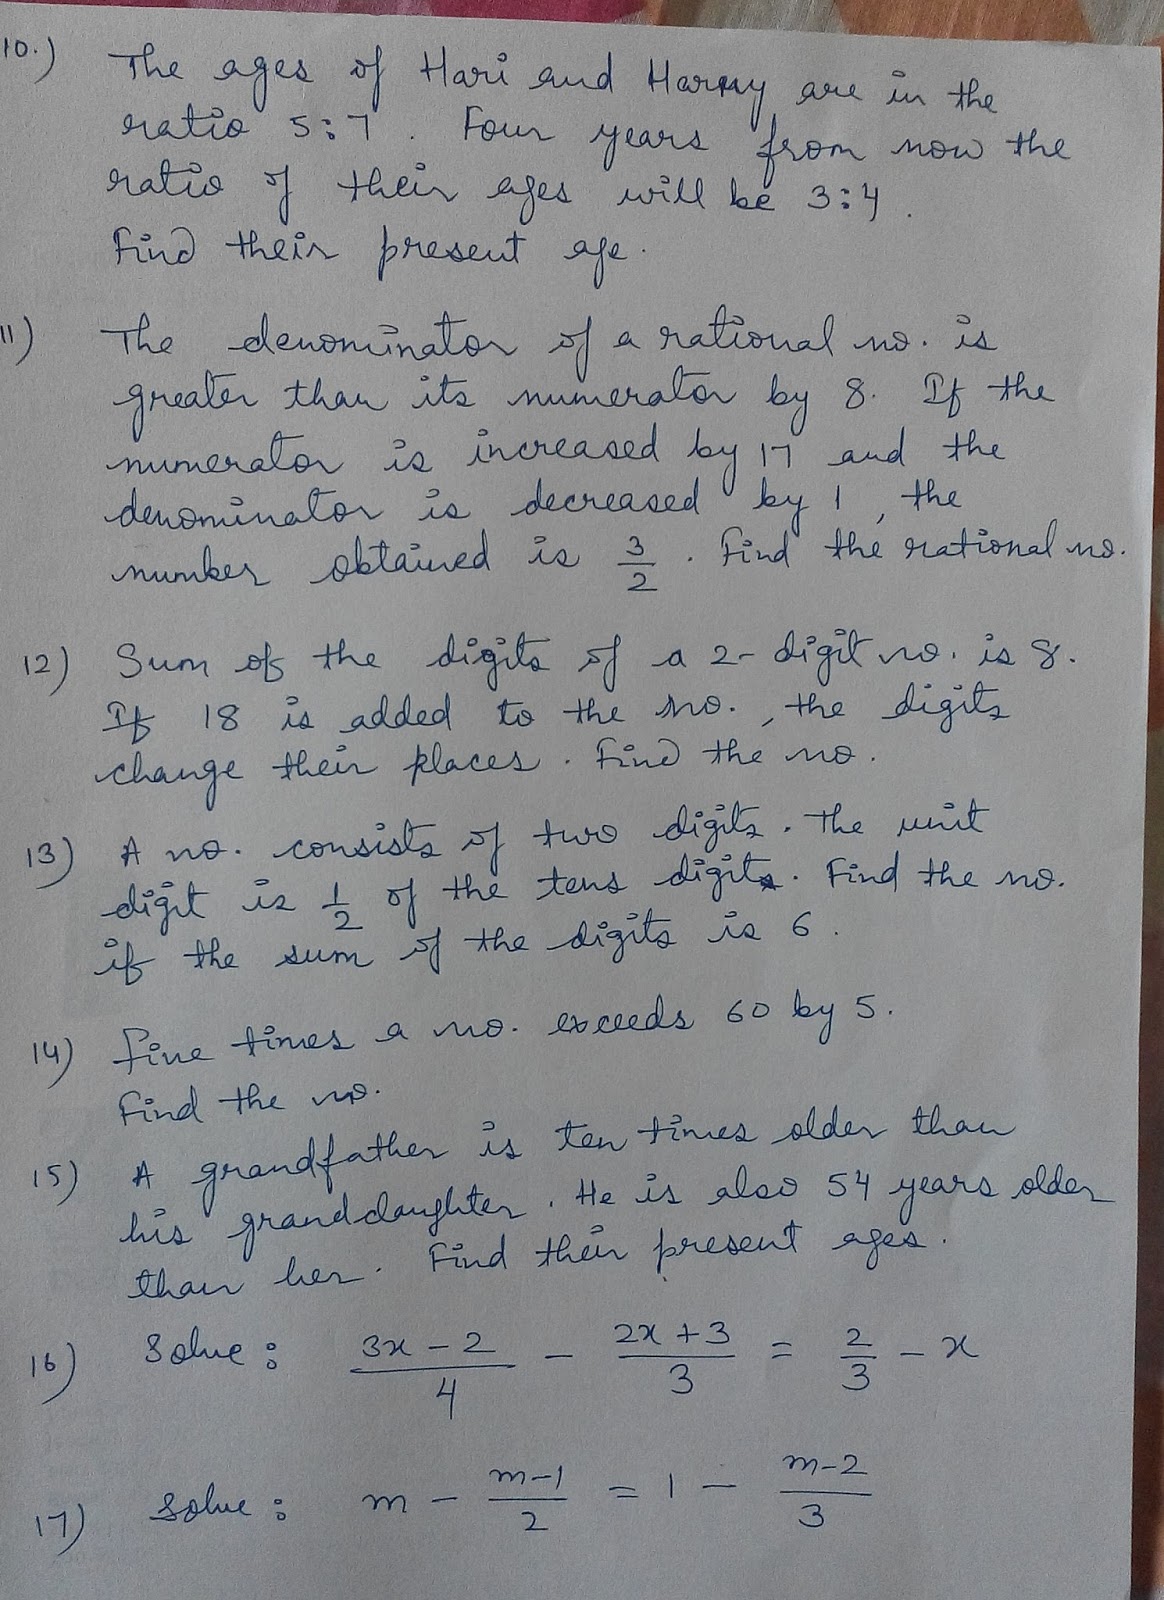 10.) The ages of Hari and Harry are in the
ratio 5:7. Four years from now the
ratio of their ages will be 3:4.
Find their present age.
11) The denominator of a rational no. is
greater than its numerator by 8. If the
numerator is increased by 17 and the
denominator is decreased by 1, the
number obtained is 3/2. Find the rational no.
12) Sum of the digits of a 2-digit no. is 8.
If 18 is added to the no., the digits
change their places. Find the no.
13) A no. consists of two digits. The unit
digit is 1/2 of the tens digit. Find the no.
if the sum of the digits is 6.
14) Five times a no. exceeds 60 by 5.
Find the no.
15) A grandfather is ten times older than
his granddaughter. He is also 54 years older
than her. Find their present ages.
16) Solve: (3x-2)/4 - (2x+3)/3 = 2/3 - x
17) Solve: m - (m-1)/2 = 1 - (m-2)/3